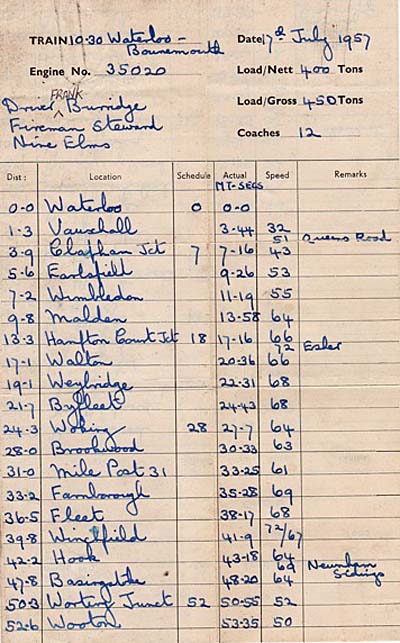 TRAIN 10-30 Waterloo - Bournemouth
Date 17th July 1957
Engine No. 35020
Load/Nett 400 Tons
FRANK
Driver ^ Burridge
Load/Gross 450 Tons
Fireman Steward
Nine Elms
Coaches 12
Dist: Location Schedule Actual Speed Remarks
MT-SECS
0-0 Waterloo 0 0-0
1-3 Vauxhall 3-44 32
51 Queens Road
3-9 Clapham Jct 7 7-16 43
5-6 Earlsfield 9-26 53
7-2 Wimbledon 11-19 55
9-8 Malden 13-58 64
13-3 Hampton Court Jct 18 17-16 66
72 Esher
17-1 Walton 20-36 66
19-1 Weybridge 22-31 68
21-7 Byfleet 24-43 68
24-3 Woking 28 27-7 64
28-0 Brookwood 30-33 63
31-0 Mile Post 31 33-25 61
33-2 Farnborough 35-28 69
36-5 Fleet 38-17 68
39-8 Winchfield 41-9 72/67
42-2 Hook 43-18 64
69 Newnham Sidings
47-8 Basingstoke 48-20 64
50-3 Worting Junct 52 50-55 52
52-6 Wooton 53-35 50